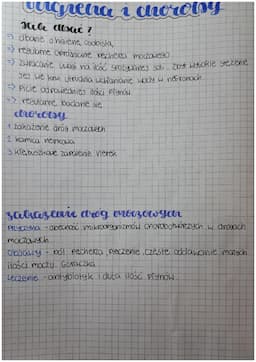 higiena i choroby
Jak dbać ?
=> dbanie o higienę osobistą
=> regularne opróżnianie pęcherza moczowego
=> zwracanie uwagi na ilość spożywanej soli. Zbyt wysokie stężenie
jej we krwi utrudnia wchłanianie wody w nefronach.
=> Picie odpowiedniej ilości płynów.
=> regularne badanie się
choroby
1 zakażenie dróg moczowych
2 kamica nerkowa
3 kłębuszkowe zapalenie nerek
zakażenie dróg moczowych
Przyczyna - obecność mikroorganizmów chorobotwórczych w drogach
moczowych
Objawy - ból pęcherza, pieczenie, częste oddawanie małych
ilości moczu. Gorączka
Leczenie - antybiotyk i duża ilość płynów.